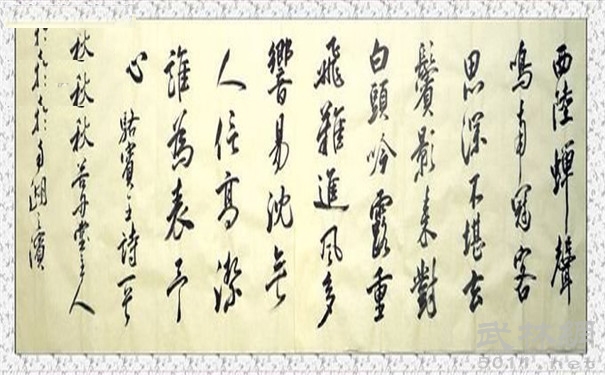 西陸蟬聲
鳴南冠客
思深不堪玄
鬢影来對
白頭吟露重
飛難進風多
響易沈無
人信高潔
誰為表予
心 駱賓王詩一首
秋秋秋 堂主人
於南湖之濱
武林网